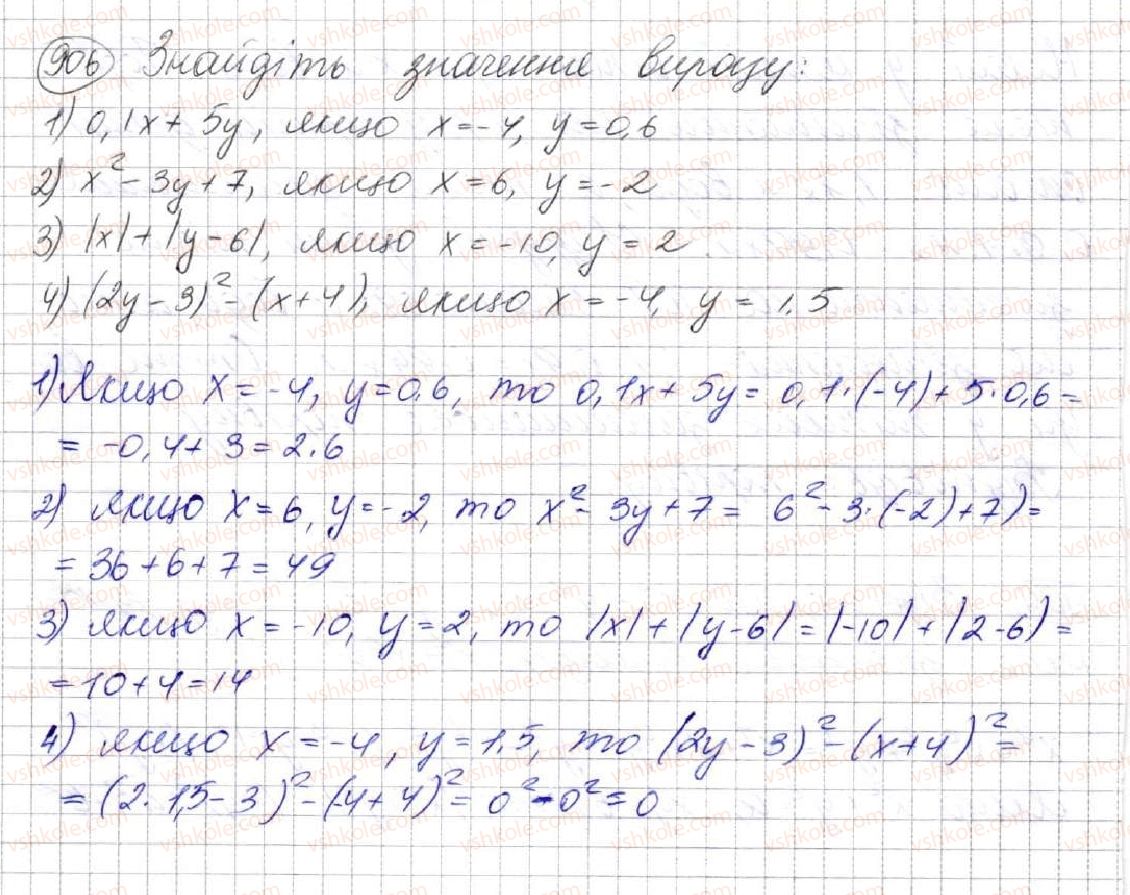 906 Знайдіть значення виразу:
1) 0,1x + 5y, якщо x = -4, y = 0,6
2) x² - 3y + 7, якщо x = 6, y = -2
3) |x| + |y - 6|, якщо x = -10, y = 2
4) (2y - 3)² - (x + 4), якщо x = -4, y = 1,5
1) Якщо x = -4, y = 0,6, то 0,1x + 5y = 0,1·(-4) + 5·0,6 =
= -0,4 + 3 = 2.6
2) якщо x = 6, y = -2, то x² - 3y + 7 = 6² - 3·(-2) + 7) =
= 36 + 6 + 7 = 49
3) якщо x = -10, y = 2, то |x| + |y - 6| = |-10| + |2 - 6) =
= 10 + 4 = 14
4) якщо x = -4, y = 1.5, то (2y - 3)² - (x + 4)² =
= (2·1,5 - 3)² - (-4 + 4)² = 0² - 0² = 0